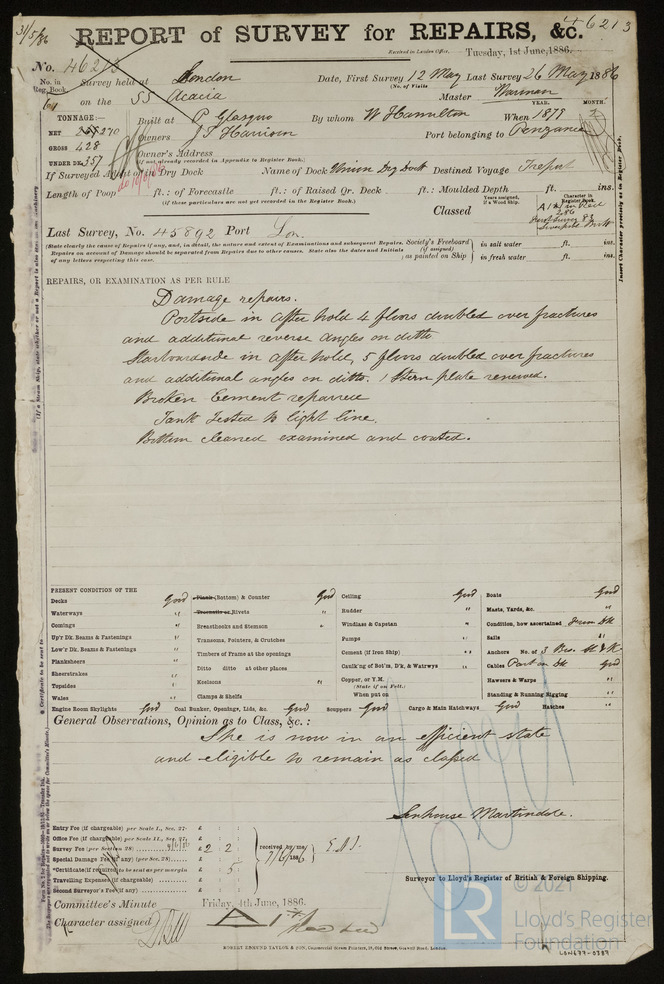 31/5/86
46213
REPORT of SURVEY for REPAIRS, &c.
Received in London Office, Tuesday, 1st June, 1886.
No. 46213
No. in Reg. Book. Survey held at London Date, First Survey 12 May Last Survey 26 May 1886
(No. of Visits
on the SS Acacia Master
TONNAGE:— Built at P. Glasgow By whom W Hamilton When 1879
YEAR. MONTH.
NET 270 Owners J. T. Harrison Port belonging to Penzance
GROSS 428
UNDER DK 357 Owner's Address
(if not already recorded in Appendix to Register Book.)
If Surveyed Afloat or in Dry Dock Name of Dock Union Dry Dock Destined Voyage Treport
Length of Poop ft.: of Forecastle ft.: of Raised Qr. Deck ft.: Moulded Depth ft. ins.
(if these particulars are not yet recorded in the Register Book.)
Years assigned, if a Wood Ship.
Character in Register Book.
Classed
Last Survey, No. 45892 Port Lon.
(State clearly the cause of Repairs if any, and, in detail, the nature and extent of Examinations and subsequent Repairs.
Repairs on account of Damage should be separated from Repairs due to other causes. State also the dates and Initials
of any letters respecting this case.
Society's Freeboard (if assigned) as painted on Ship in salt water ft. ins.
in fresh water ft. ins.
Insert Character precisely as in Register Book.
REPAIRS, OR EXAMINATION AS PER RULE
Damage repairs.
Portside in after hold 4 floors doubled over fractures
and additional reverse angles on ditto
Starboardside in after hold, 5 floors doubled over fractures
and additional angles on ditto. 1 Stern plate renewed.
Broken Cement repaired
Tank Tested to light line.
Bottom cleaned examined and coated.
PRESENT CONDITION OF THE
Decks Good
Waterways "
Comings "
Up'r Dk. Beams & Fastenings "
Low'r Dk. Beams & Fastenings "
Planksheers "
Sheerstrakes "
Topsides "
Wales "
Engine Room Skylights Good
Plank (Bottom) & Counter Good
Treenails or Rivets "
Breasthooks and Stemson "
Transoms, Pointers, & Crutches
Timbers of Frame at the openings
Ditto ditto at other places
Keelsons "
Clamps & Shelfs
Coal Bunker, Openings, Lids, &c. Good
Ceiling Good
Rudder "
Windlass & Capstan "
Pumps "
Cement (if Iron Ship) "
Caulk'ng of Bot'm, D'k, & Watrwys "
Copper, or Y.M.
(State if on Felt.)
When put on
Scuppers Good
Cargo & Main Hatchways Good
Boats Good
Masts, Yards, &c. "
Condition, how ascertained From Dk
Sails "
Anchors No. of 3 Bro. St & K.
Cables Part on Dk Good
Hawsers & Warps "
Standing & Running Rigging "
Hatches "
General Observations, Opinion as to Class, &c. :
She is now in an efficient state
and eligible to remain as classed
Senhouse Martindale.
Entry Fee (if chargeable) per Scale I., Sec. 27. £
Office Fee (if chargeable) per Scale II., Sec. 27. £
Survey Fee (per Section 28) £ 2 2
Special Damage Fee (if any) (per Sec. 28) £
Certificate (if required to be sent as per margin £ 5
Travelling Expenses (if chargeable) £
Second Surveyor's Fee (if any) £
received by me,
7/6/1886
Surveyor to Lloyd's Register of British & Foreign Shipping.
Committee's Minute Friday, 4th June, 1886.
Character assigned
ROBERT EDMUND TAYLOR & SON, Commercial Steam Printers, Old Street, Goswell Road, London.
© 2021
LR
Lloyd's Register
Foundation
LON677-0387